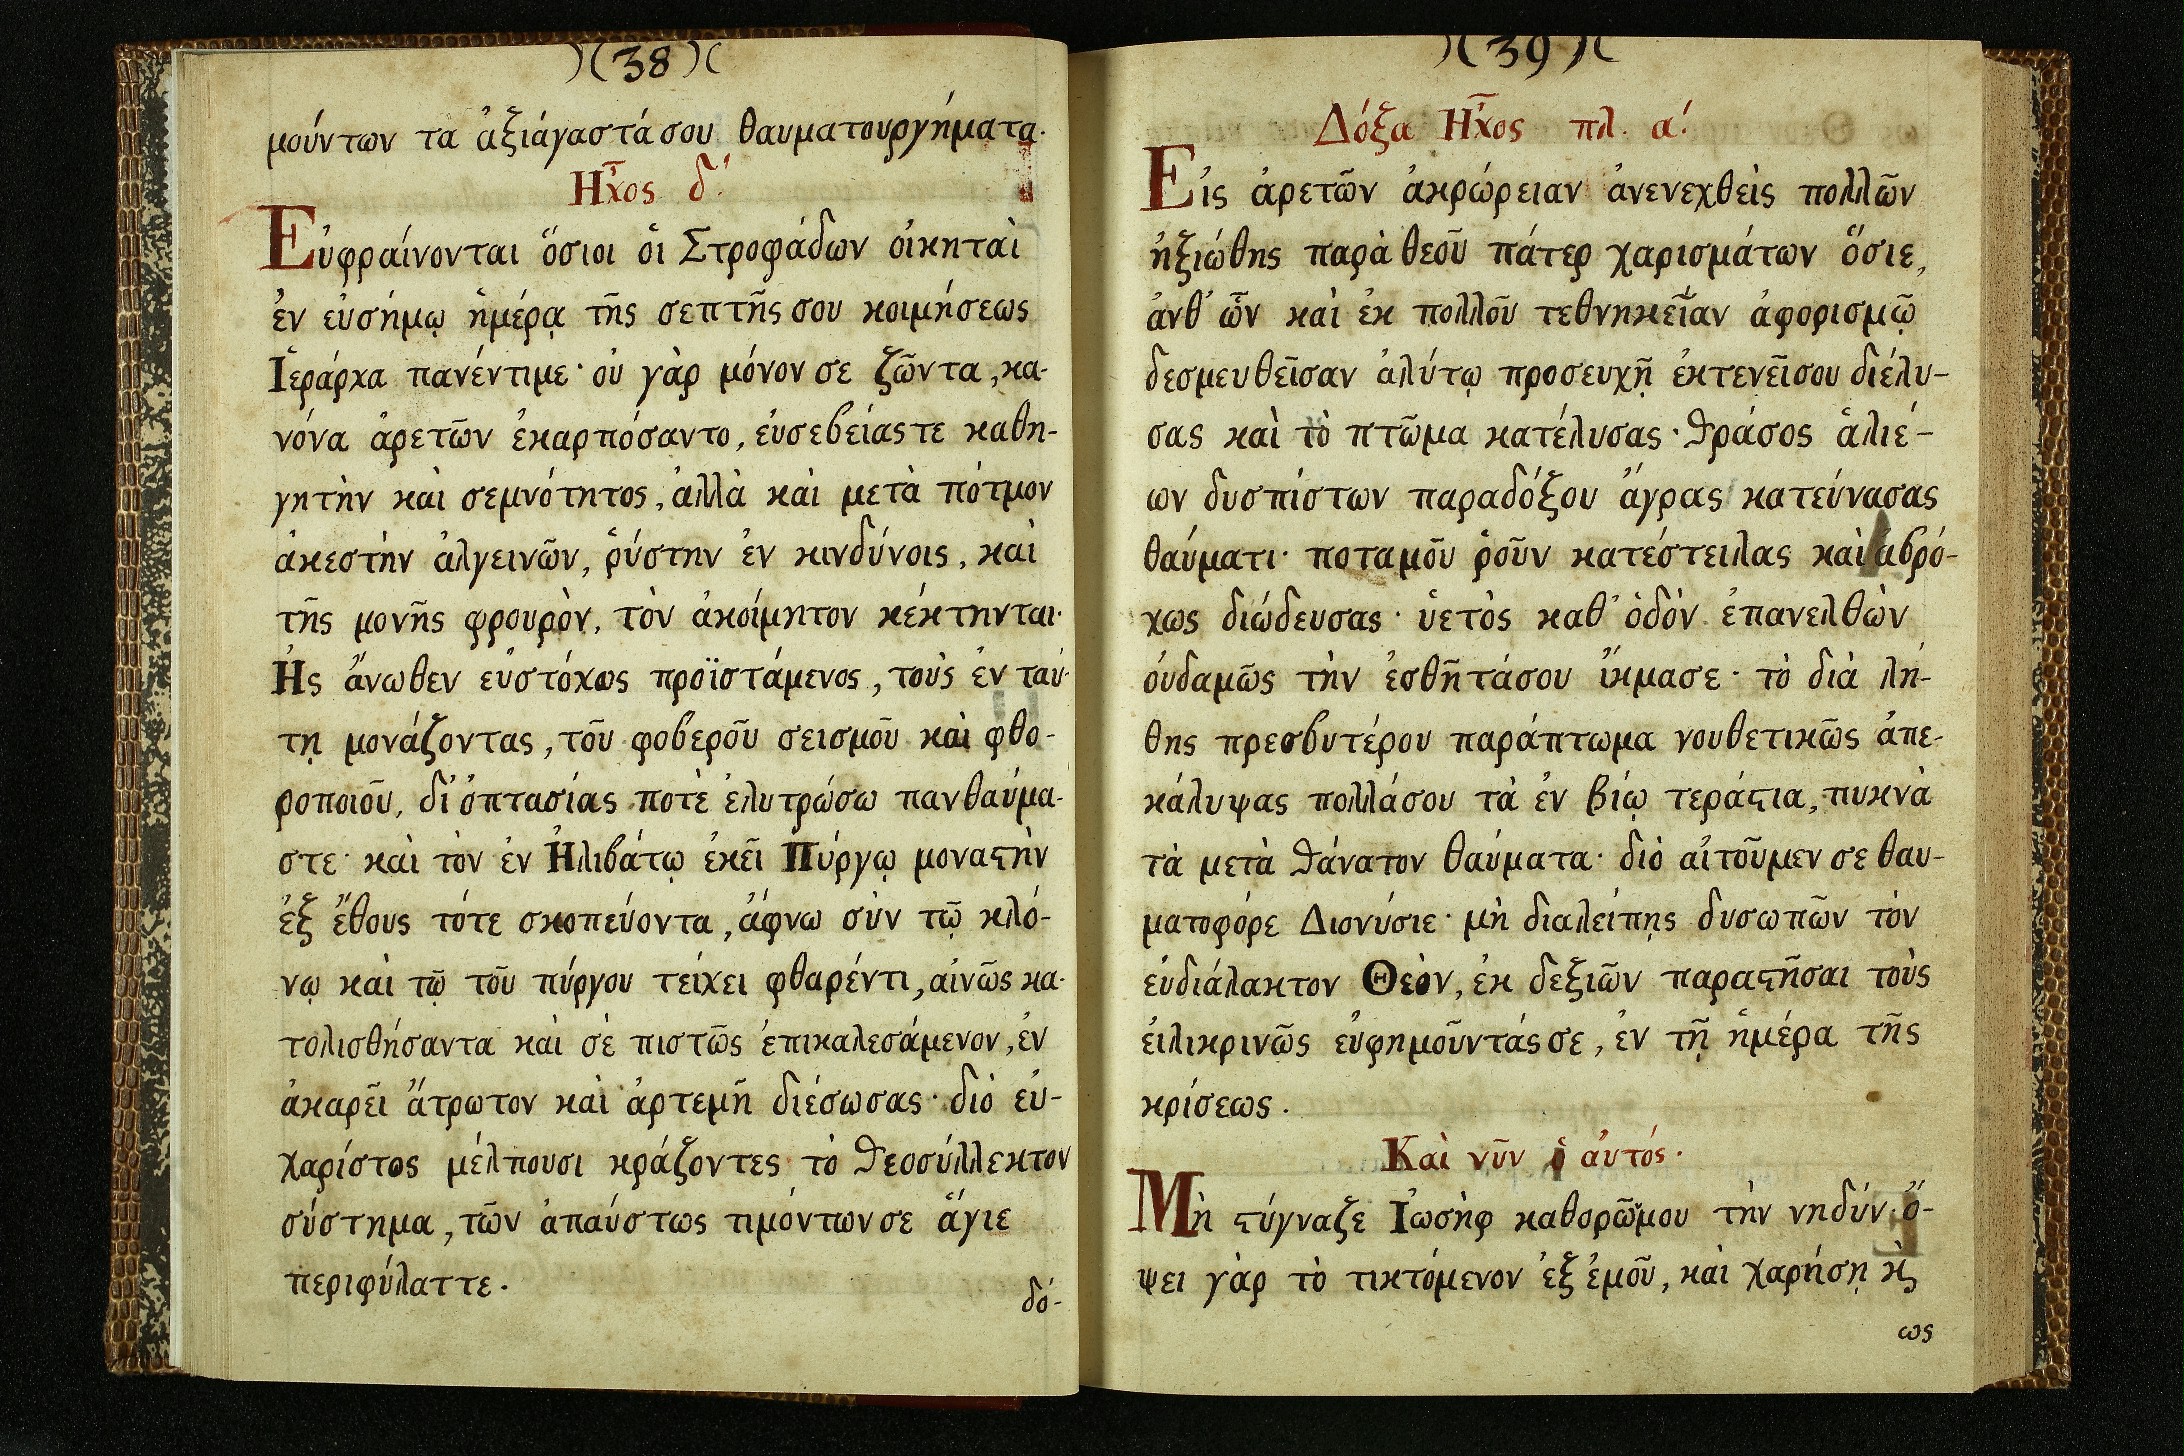 )(38)(
μούντων τα ἀξιάγαστά σου θαυματουργήματα.
Ἦχος δ'.
Εὐφραίνονται ὅσιοι ὁἱ Στροφάδων οἰκηταὶ
ἐν εὐσήμῳ ἡμέρᾳ τῆς σεπτῆς σου κοιμήσεως
Ἱεράρχα πανέντιμε· οὐ γὰρ μόνον σε ζῶντα, κα-
νόνα ἀρετῶν ἐκαρπόσαντο, εὐσεβείας τε καθη-
γητὴν καὶ σεμνότητος, ἀλλὰ καὶ μετὰ πότμον
ἀκεστὴν ἀλγεινῶν, ῥύστην ἐν κινδύνοις, καὶ
τῆς μονῆς φρουρὸν, τὸν ἀκοίμητον κέκτηνται.
Ἧς ἄνωθεν εὐστόχως προϊστάμενος, τοὺς ἐν ταύ-
τῃ μονάζοντας, τοῦ φοβεροῦ σεισμοῦ καὶ φθο-
ροποιοῦ, δι' ὀπτασίας ποτὲ ἐλυτρώσω πανθαύμα-
στε· καὶ τὸν ἐν Ἠλιβάτῳ ἐκεῖ Πύργῳ μοναϛὴν
ἐξ ἔθους τότε σκοπεύοντα, ἄφνω σὺν τῷ κλό-
νῳ καὶ τῷ τοῦ πύργου τείχει φθαρέντι, αἰνῶς κα-
τολισθήσαντα καὶ σὲ πιστῶς ἐπικαλεσάμενον, ἐν
ἀκαρεῖ ἄτρωτον καὶ ἀρτεμῆ διέσωσας· διὸ εὐ-
χαρίστος μέλπουσι κράζοντες τὸ θεοσύλλεκτον
σύστημα, τῶν ἀπαύστως τιμόντων σε ἅγιε
περιφύλαττε.
δό-
)(39)(
Δόξα Ἦχος πλ. α'.
Εἰς ἀρετῶν ἀκρώρειαν ἀνενεχθεὶς πολλῶν
ἠξιώθης παρὰ θεοῦ πάτερ χαρισμάτων ὅσιε,
ἀνθ' ὧν καὶ ἐκ πολλοῦ τεθνηκεῖαν ἀφορισμῷ
δεσμευθεῖσαν ἀλύτῳ προσευχῇ ἐκτενεῖ σου διέλυ-
σας καὶ τὸ πτῶμα κατέλυσας· θράσος ἁλιέ-
ων δυσπίστων παραδόξου ἄγρας κατεύνασας
θαύματι· ποταμοῦ ῥοῦν κατέστειλας καὶ ἀβρό-
χως διώδευσας· ὑετὸς καθ' ὁδὸν ἐπανελθὼν
οὐδαμῶς τὴν ἐσθῆτά σου ἴκμασε· τὸ διὰ λή-
θης πρεσβυτέρου παράπτωμα νουθετικῶς ἀπε-
κάλυψας πολλά σου τὰ ἐν βίῳ τεράϛια, πυκνὰ
τὰ μετὰ θάνατον θαύματα· διὸ αἰτοῦμεν σε θαυ-
ματοφόρε Διονύσιε· μὴ διαλείπῃς δυσωπῶν τὸν
εὐδιάλακτον Θεὸν, ἐκ δεξιῶν παραϛῆσαι τοὺς
εἰλικρινῶς εὐφημοῦντάς σε, ἐν τῇ ἡμέρα τῆς
κρίσεως.
Καὶ νῦν ὁ αὐτός.
Μὴ ϛύγναζε Ἰωσὴφ καθορῶν μου τὴν νηδύν· ὄ-
ψει γὰρ τὸ τικτόμενον ἐξ ἐμοῦ, καὶ χαρήσῃ κϳ
ως